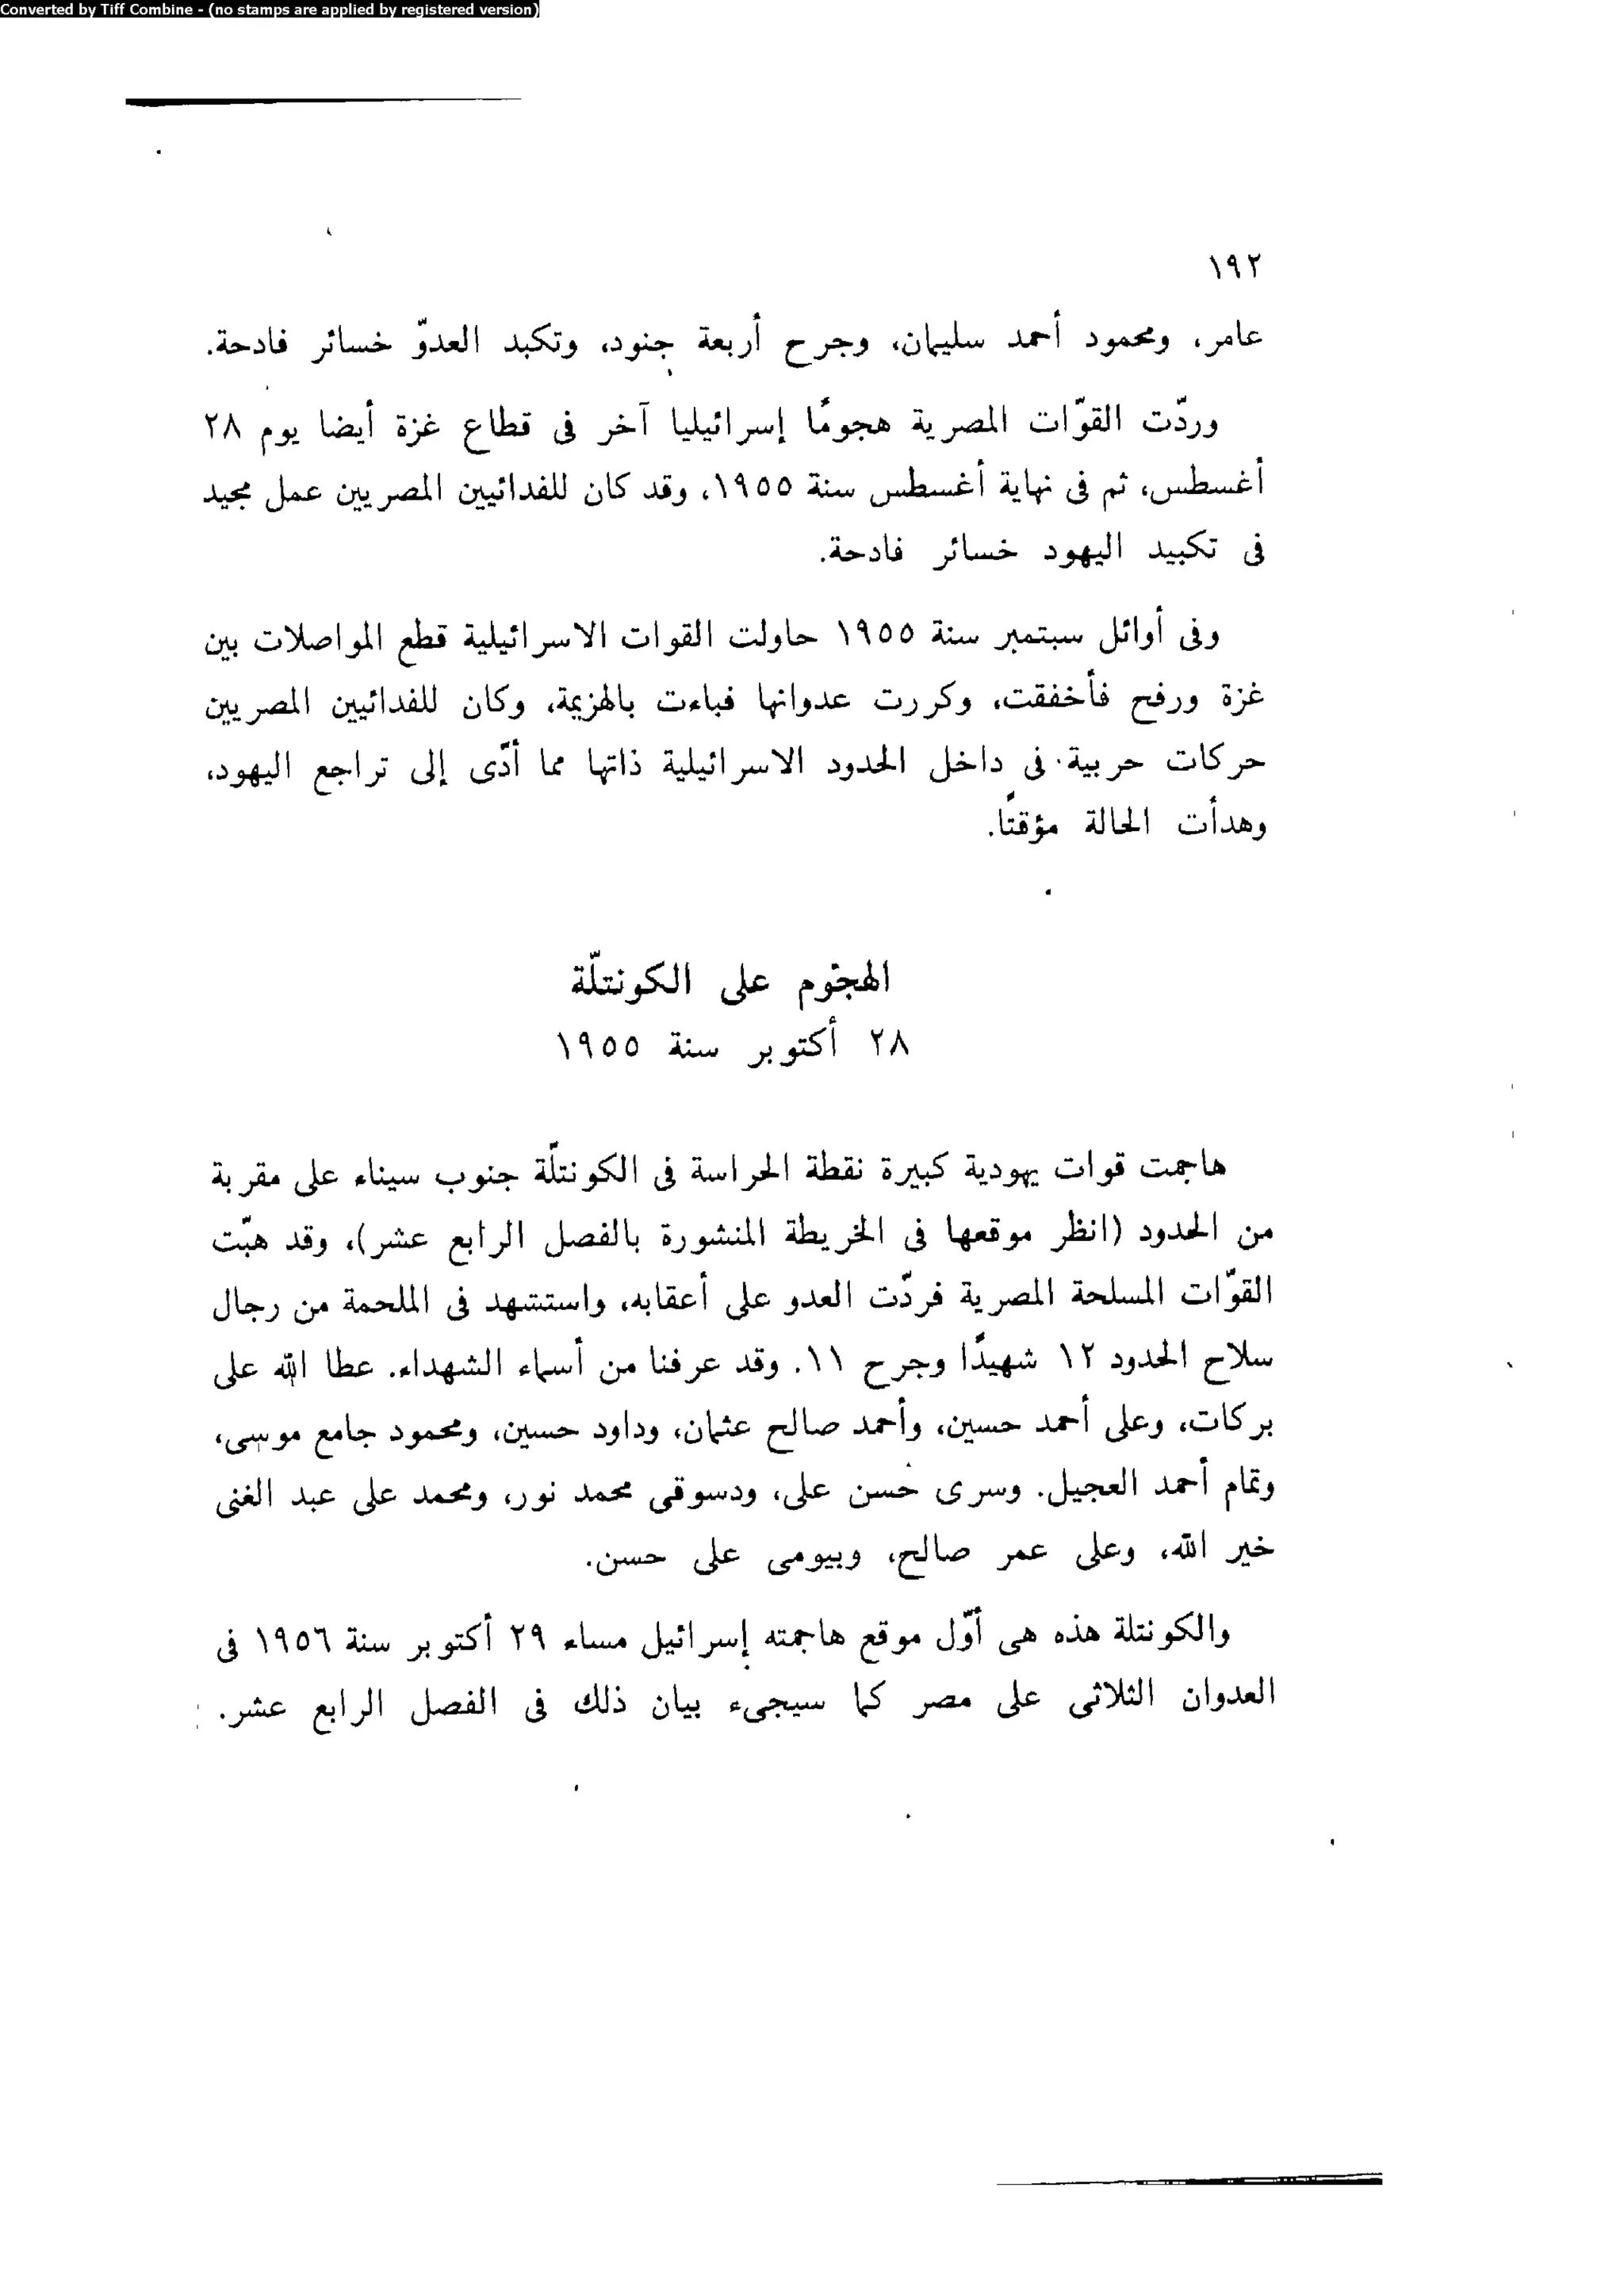 Converted by Tiff Combine - (no stamps are applied by registered version)
١٩٢
عامر، ومحمود أحمد سليمان، وجرح أربعة جنود، وتكبد العدوّ خسائر فادحة.
وردّت القوّات المصرية هجومًا إسرائيليا آخر فى قطاع غزة أيضا يوم ٢٨
أغسطس، ثم فى نهاية أغسطس سنة ١٩٥٥، وقد كان للفدائيين المصريين عمل مجيد
فى تكبيد اليهود خسائر فادحة.
وفى أوائل سبتمبر سنة ١٩٥٥ حاولت القوات الاسرائيلية قطع المواصلات بين
غزة ورفح فأخفقت، وكررت عدوانها فباءت بالهزيمة، وكان للفدائيين المصريين
حركات حربية فى داخل الحدود الاسرائيلية ذاتها مما أدّى إلى تراجع اليهود،
وهدأت الحالة مؤقتًا.
الهجوم على الكونتلّة
٢٨ أكتوبر سنة ١٩٥٥
هاجمت قوات يهودية كبيرة نقطة الحراسة فى الكونتلّة جنوب سيناء على مقربة
من الحدود (انظر موقعها فى الخريطة المنشورة بالفصل الرابع عشر)، وقد هبّت
القوّات المسلحة المصرية فردّت العدو على أعقابه، واستشهد فى الملحمة من رجال
سلاح الحدود ١٢ شهيدًا وجرح ١١. وقد عرفنا من أسماء الشهداء. عطا الله على
بركات، وعلى أحمد حسين، وأحمد صالح عثمان، وداود حسين، ومحمود جامع موسى،
وتمام أحمد العجيل. وسرى حسن على، ودسوقى محمد نور، ومحمد على عبد الغنى
خير الله، وعلى عمر صالح، وبيومى على حسن.
والكونتلة هذه هى أوّل موقع هاجمته إسرائيل مساء ٢٩ أكتوبر سنة ١٩٥٦ فى
العدوان الثلاثى على مصر كما سيجىء بيان ذلك فى الفصل الرابع عشر.